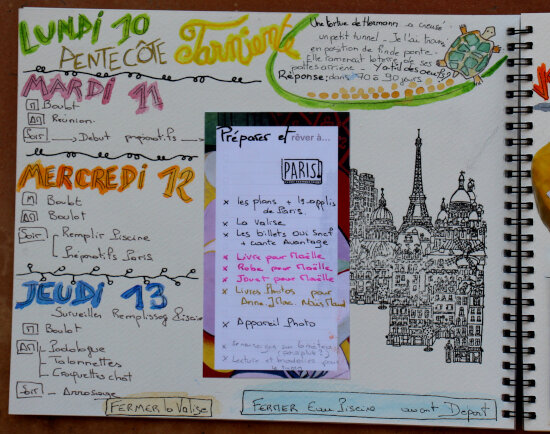 LUNDI 10
PENTECÔTE
Farniente
Une Tortue de Hermann a creusé
un petit tunnel - Je l'ai trouvé
en position de fin de ponte -
Elle ramenait la terre de ses
pattes arrière - Y a-t-il des oeufs?
Réponse: dans 70 à 90 jours
MARDI 11
M Boulot
AM Réunion
Soir Début préparatifs
MERCREDI 12
M Boulot
AM Boulot
Soir Remplir Piscine
Préparatifs Paris
JEUDI 13
Surveiller Remplissag Piscine
M Boulot
AM Podologue
Talonnettes
Croquettes chat
Soir - Arrosage
Préparer et rêver à...
PARIS
x les plans + les applis
de Paris
x La valise
x Les billets Oui Sncf
+ carte Avantage
x Livre pour Maëlle
x Robe pour Maëlle
x Jouet pour Maëlle
x Livres Photos pour
x Appareil Photo
x Lecture et
FERMER la Valise
FERMER Eau Piscine avant Départ